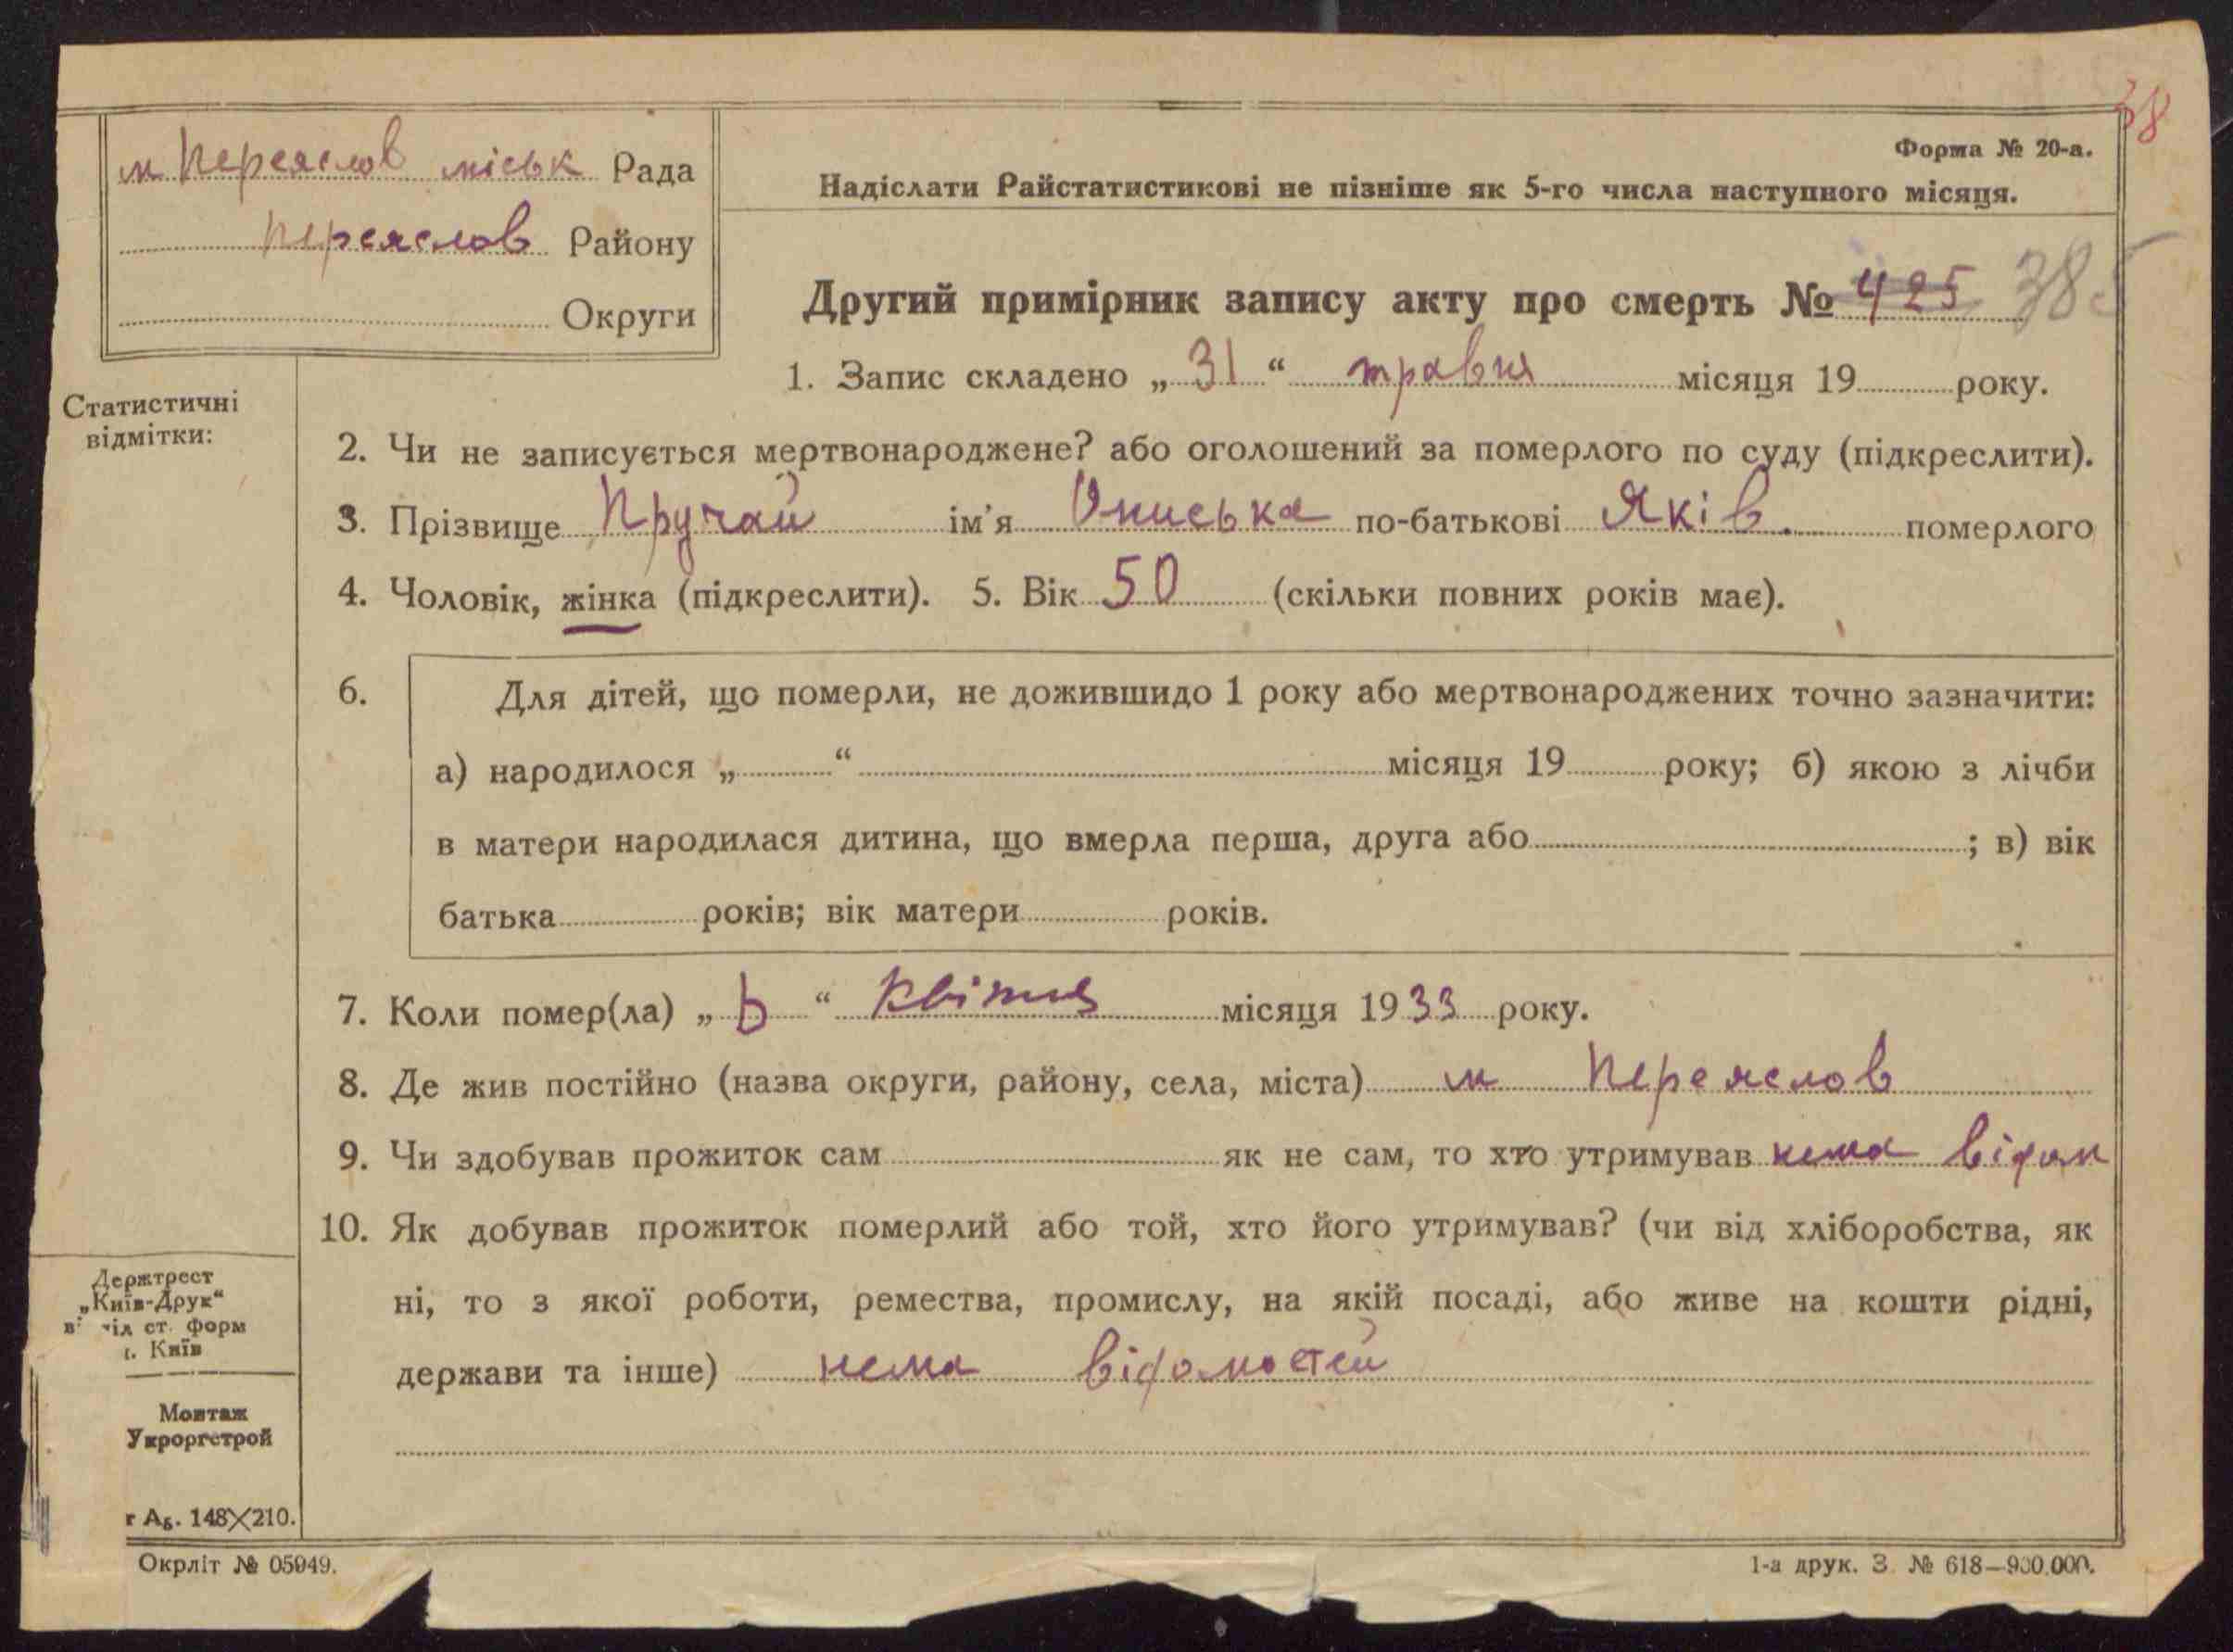 38
м Переяслов міськ Рада
Переяслов Району
Округи
Форма № 20-а.
Надіслати Райстатистикові не пізніше як 5-го числа наступного місяця.
Другий примірник запису акту про смерть № 425 385
1. Запис складено „31“ травня місяця 19 року.
Статистичні
відмітки:
2. Чи не записується мертвонароджене? або оголошений за померлого по суду (підкреслити).
3. Прізвище Пручай ім'я Ониська по-батькові Яків. померлого
4. Чоловік, жінка (підкреслити). 5. Вік 50 (скільки повних років має).
6. Для дітей, що померли, не дожившидо 1 року або мертвонароджених точно зазначити:
а) народилося „ “ місяця 19 року; б) якою з лічби
в матери народилася дитина, що вмерла перша, друга або ; в) вік
батька років; вік матери років.
7. Коли помер(ла) „ “ Квітня місяця 1933 року.
8. Де жив постійно (назва округи, району, села, міста) м Переяслов
9. Чи здобував прожиток сам як не сам, то хто утримував нема відом
10. Як добував прожиток померлий або той, хто його утримував? (чи від хліборобства, як
ні, то з якої роботи, ремества, промислу, на якій посаді, або живе на кошти рідні,
держави та інше) нема відомостей
Держтрест
„Київ-Друк“
ст. форм
Київ
Монтаж
Укроргстрой
г А5. 148×210.
Окрліт № 05949.
1-а друк. З. № 618—900.000.